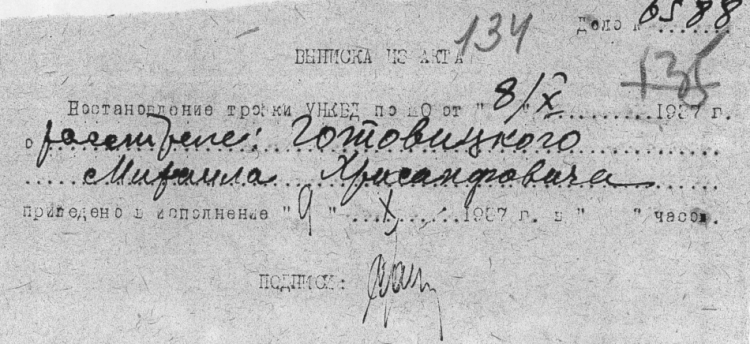 Дело № 6588
134
ВЫПИСКА ИЗ АКТА
135
Постановление тройки УНКВД по МО от "8/X" ......... 1937 г.
о расстреле: Готовицкого
Михаила Хрисанфовича
приведено в исполнение "9" ... X ... 1937 г. в " " часов.
ПОДПИСИ: